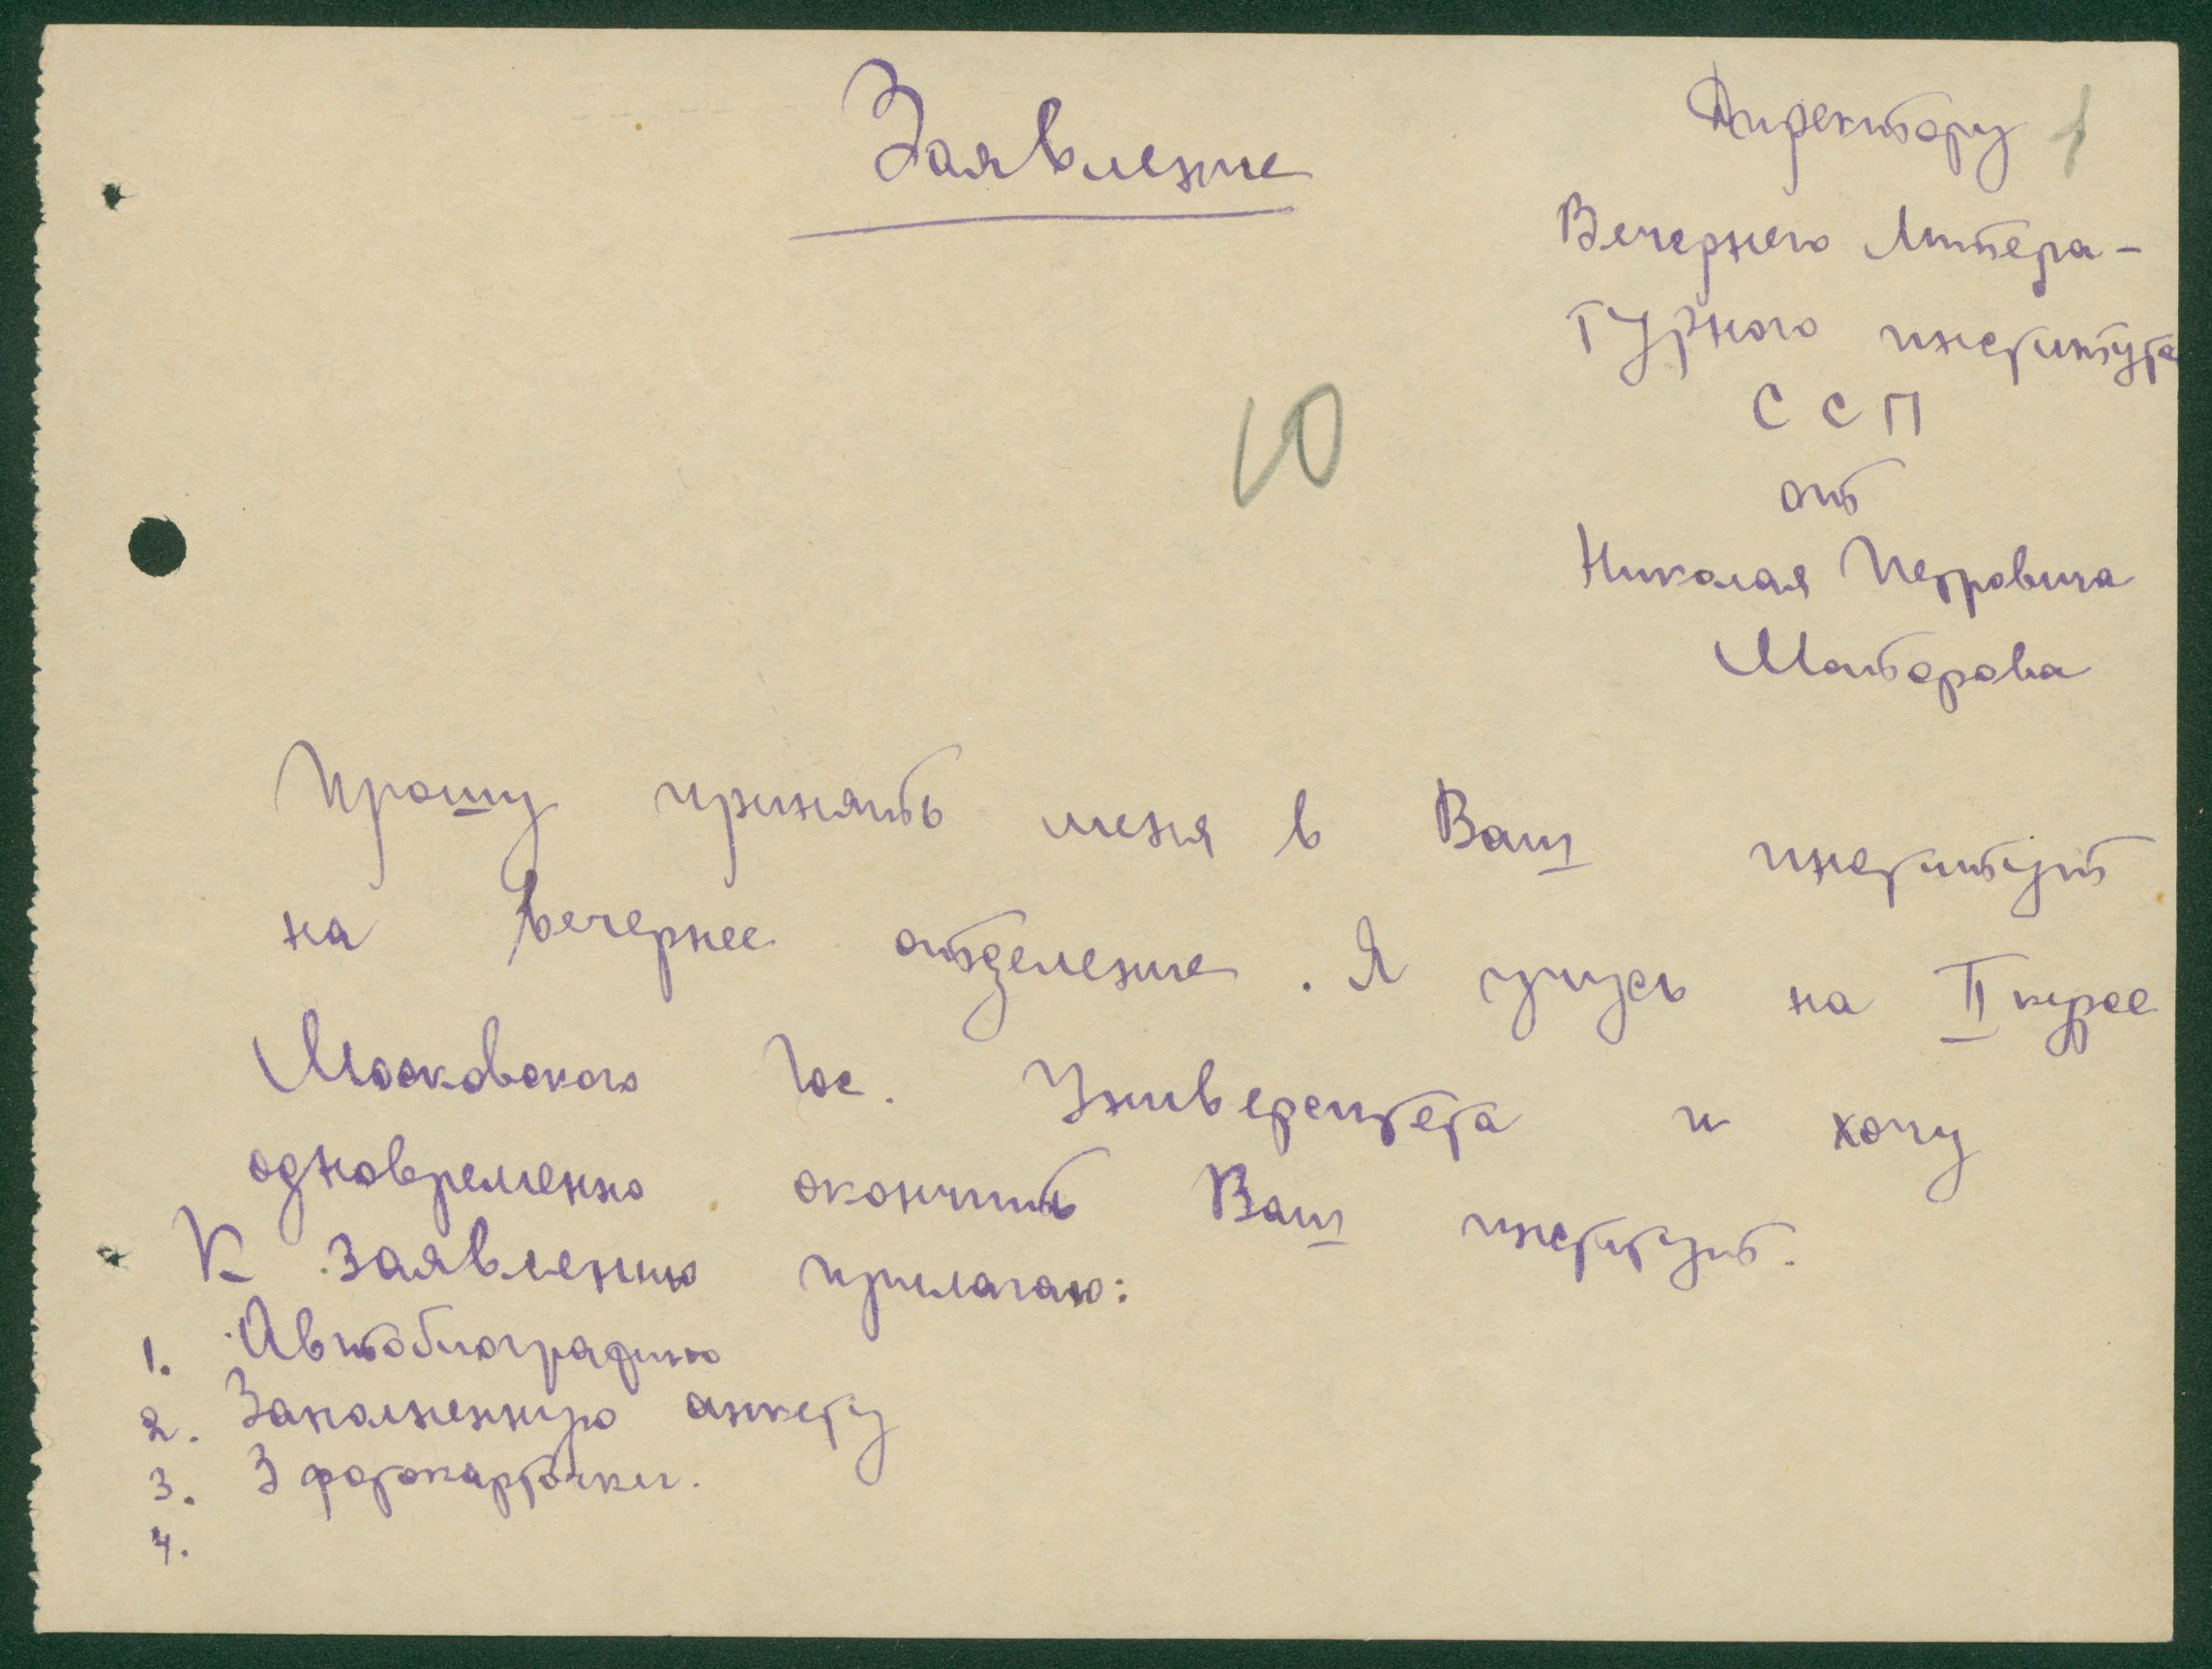 Заявление
Директору
1
Вечернего Литера-
турного института
ССП
от
Николая Петровича
Маторова
10
Прошу принять меня в Ваш институт
на вечернее отделение. Я учусь на II курсе
Московского Гос. Университета и хочу
одновременно окончить Ваш институт.
К заявлению прилагаю:
1. Автобиографию
2. Заполненную анкету
3. 3 фотокарточки.
4.